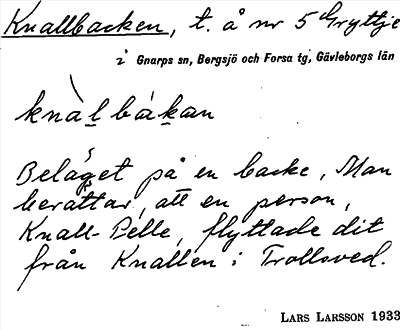 Knallbacken, t. å nr 5 Gryttje
i Gnarps sn, Bergsjö och Forsa tg, Gävleborgs län
knàlbákan
Beläget på en backe, Man
berättar, att en person,
Knall-Pelle, flyttade dit
från Knallen i Trollsved.
LARS LARSSON 1933